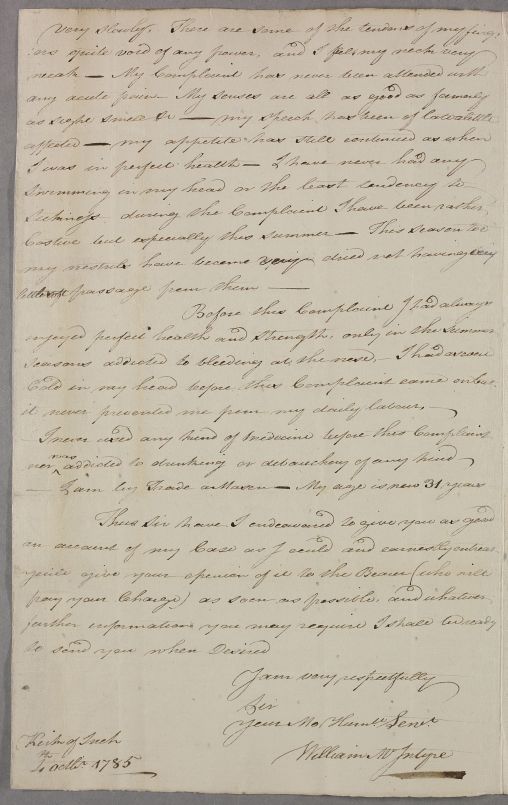 very slowly. There are some of the tendons of my fing-
:ers quite void of any power, and I feel my neck very
weak — My Complaint has never been attended with
any acute pain My senses are all as good as formerly
as sight smell &c — my speech has been of late a little
affected — my appetite has still continued as when
I was in perfect health — I have never had any
Swimming in my head or the least tendency to
Sickness during the Complaint I have been rather
Costive but especially this summer — This season too
my nostrils have become very dried not having any
little passage from them —
Before this Complaint I had always
enjoyed perfect health and strength, only in the summer
seasons addicted to bleeding at the nose — I had a severe
Cold in my head before this Complaint came on but
it never prevented me from my daily labour, —
I never used any kind of medicine before this Complaint
nor was addicted to drinking or debauchery of any kind
— I am by Trade a Mason — My age is now 31 years
Thus Sir have I endeavoured to give you as good
an account of my Case as I could and earnestly entreat
you'll give your opinion of it to the Bearer (who will
pay your Charge) as soon as possible, and whatever
further information you may require I shall be ready
to send you when Desired
I am very respectfully
Sir
Your Mo. Humle. Servt.
William Mc Intyre
Kirk of Insh
4th octbr. 1785